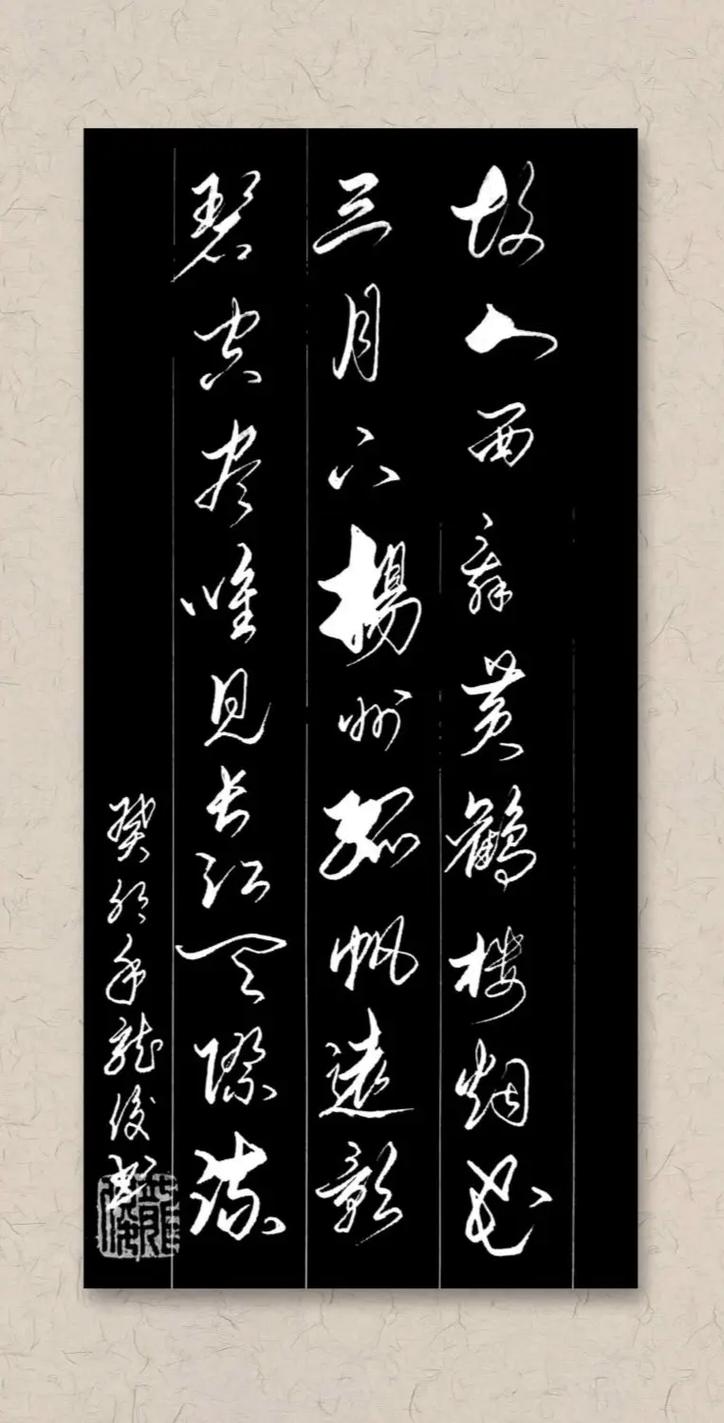 故人西辞黄鶴楼烟花
三月下楊州孤帆遠影
碧空尽唯見长江天際流
癸卯年龍俊书